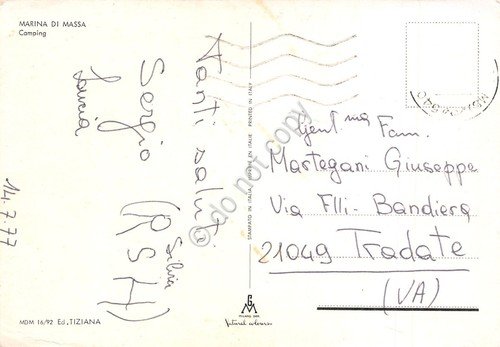 MARINA DI MASSA
Camping
Tanti saluti
Sergio
(RSH)
Silvia
14.7.77
MDM 16/92 Ed. TIZIANA
STAMPATO IN ITALIA PRINTED IN ITALY
do not copy
GM
Natural colours
Gent.ma Fam.
Martegani Giuseppe
Via Flli. Bandiera
21049 Tradate
(VA)